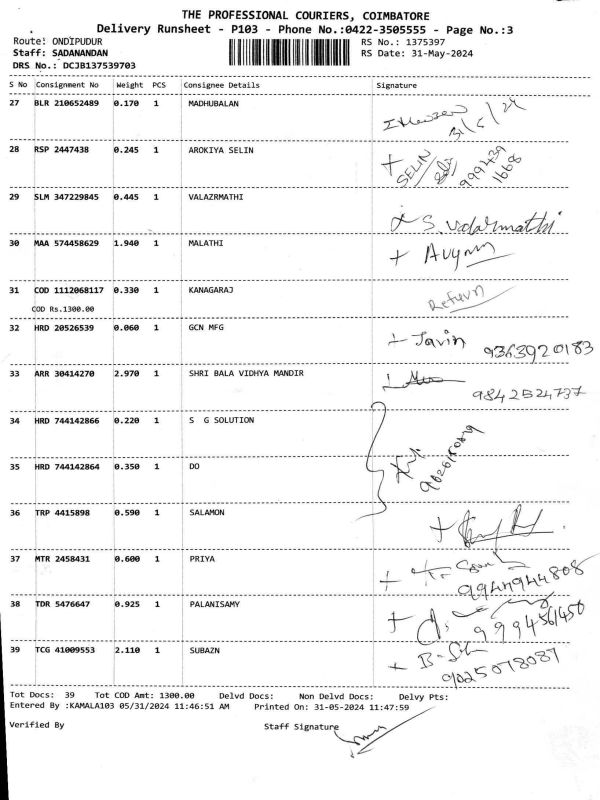 THE PROFESSIONAL COURIERS, COIMBATORE
Delivery Runsheet - P103 - Phone No.:0422-3505555 - Page No.:3
Route: ONDIPUDUR RS No.: 1375397
Staff: SADANANDAN RS Date: 31-May-2024
DRS No.: DCJB137539703
S No Consignment No Weight PCS Consignee Details Signature
27 BLR 210652489 0.170 1 MADHUBALAN
28 RSP 2447438 0.245 1 AROKIYA SELIN SELIN 999439
1668
29 SLM 347229845 0.445 1 VALAZRMATHI S. Valarmathi
30 MAA 574458629 1.940 1 MALATHI
31 COD 1112068117 0.330 1 KANAGARAJ Return
COD Rs.1300.00
32 HRD 20526539 0.060 1 GCN MFG Javin 9363920183
33 ARR 30414270 2.970 1 SHRI BALA VIDHYA MANDIR 9842524737
34 HRD 744142866 0.220 1 S G SOLUTION
35 HRD 744142864 0.350 1 DO
36 TRP 4415898 0.590 1 SALAMON
37 MTR 2458431 0.600 1 PRIYA 9944944808
38 TDR 5476647 0.925 1 PALANISAMY 9994561450
39 TCG 41009553 2.110 1 SUBAZN 9025078087
Tot Docs: 39 Tot COD Amt: 1300.00 Delvd Docs: Non Delvd Docs: Delvy Pts:
Entered By :KAMALA103 05/31/2024 11:46:51 AM Printed On: 31-05-2024 11:47:59
Verified By Staff Signature